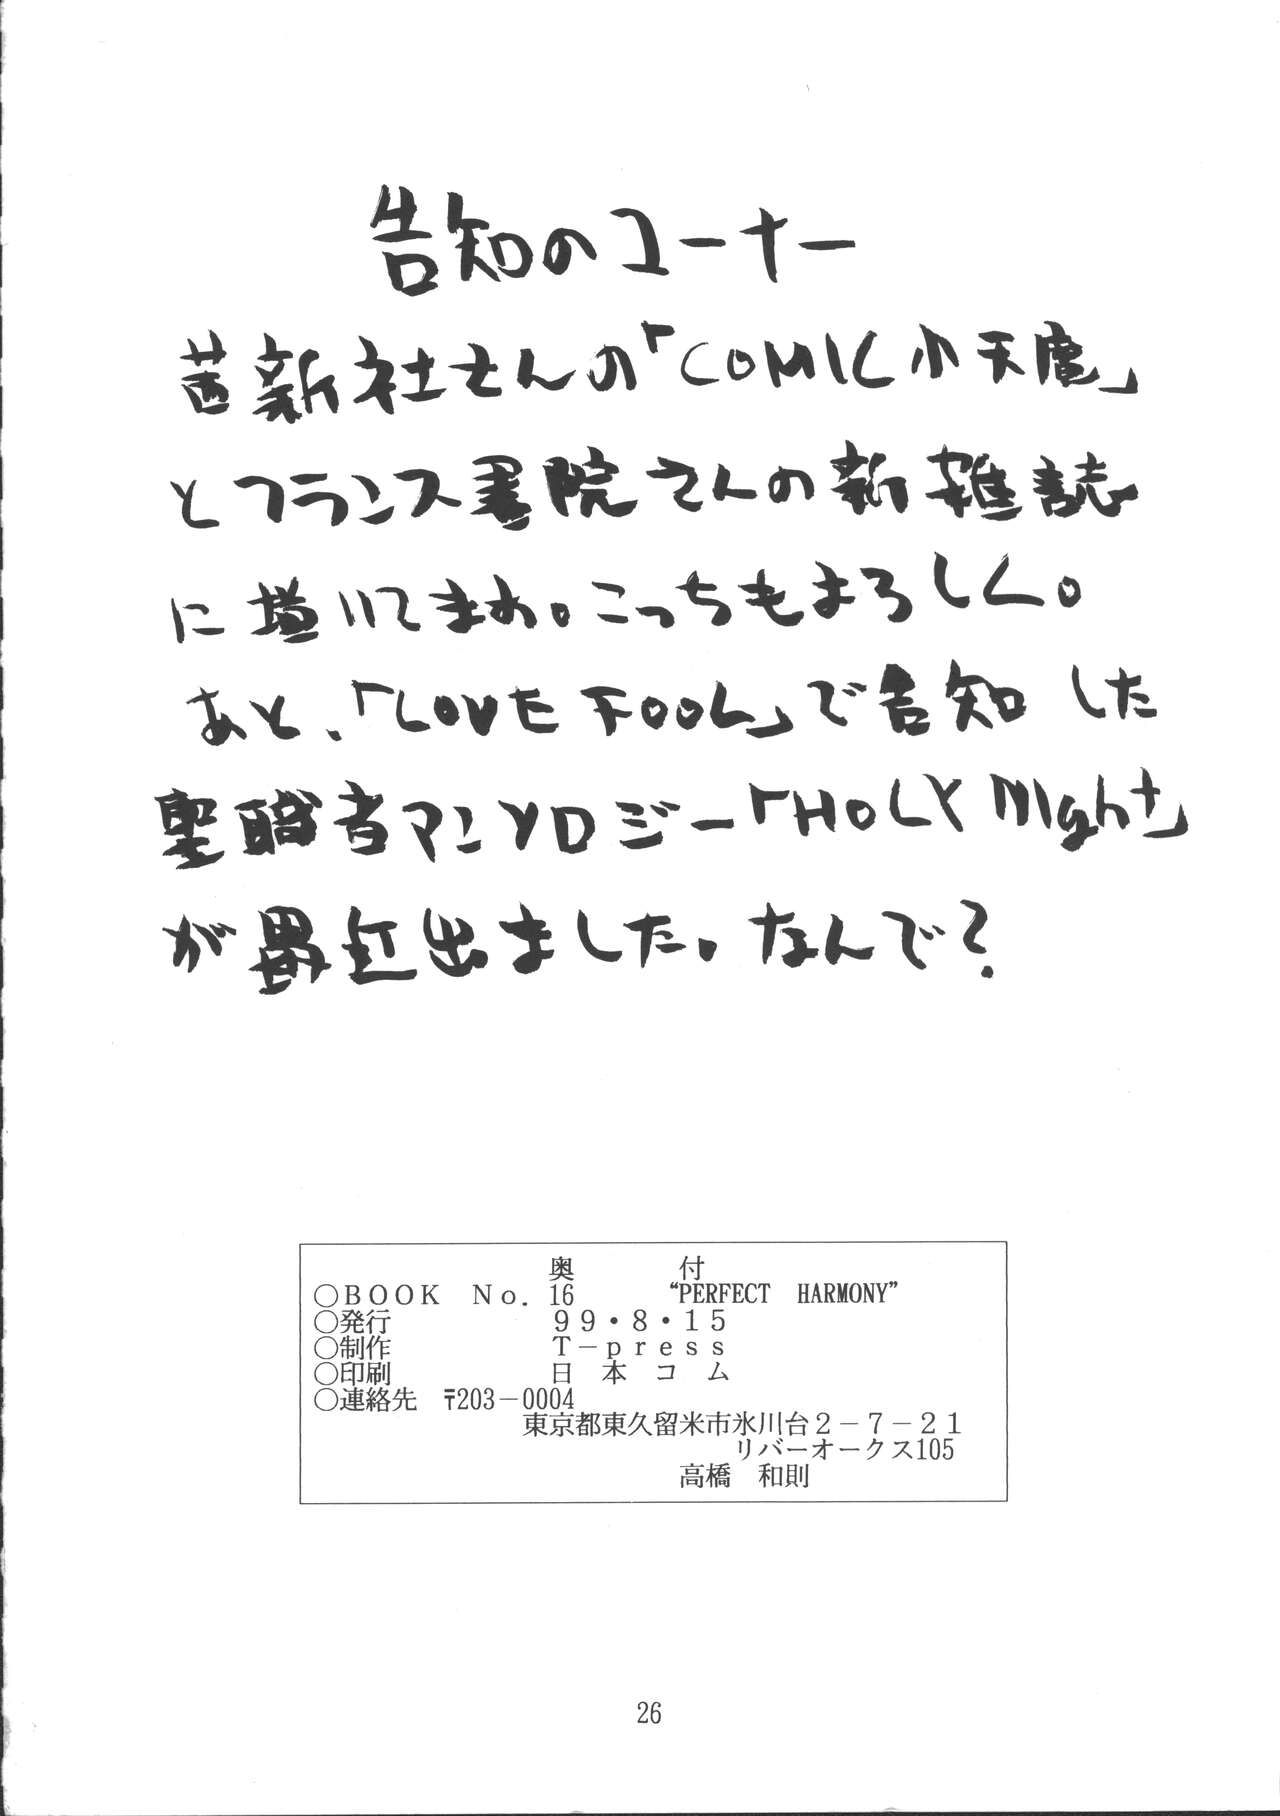 告知のコーナー
茜新社さんの「COMIC小天魔」
とフランス書院さんの新雑誌
に描いてまわ。こっちもよろしく。
あと、「LOVE FOOL」で告知した
聖職者アンソロジー「HOLY Night」
が最近出ました。なんで？
奥　付
○BOOK No. 16 “PERFECT HARMONY”
○発行 99・8・15
○制作 T－press
○印刷 日本コム
○連絡先 〒203－0004
東京都東久留米市氷川台2－7－21
リバーオークス105
高橋 和則
26